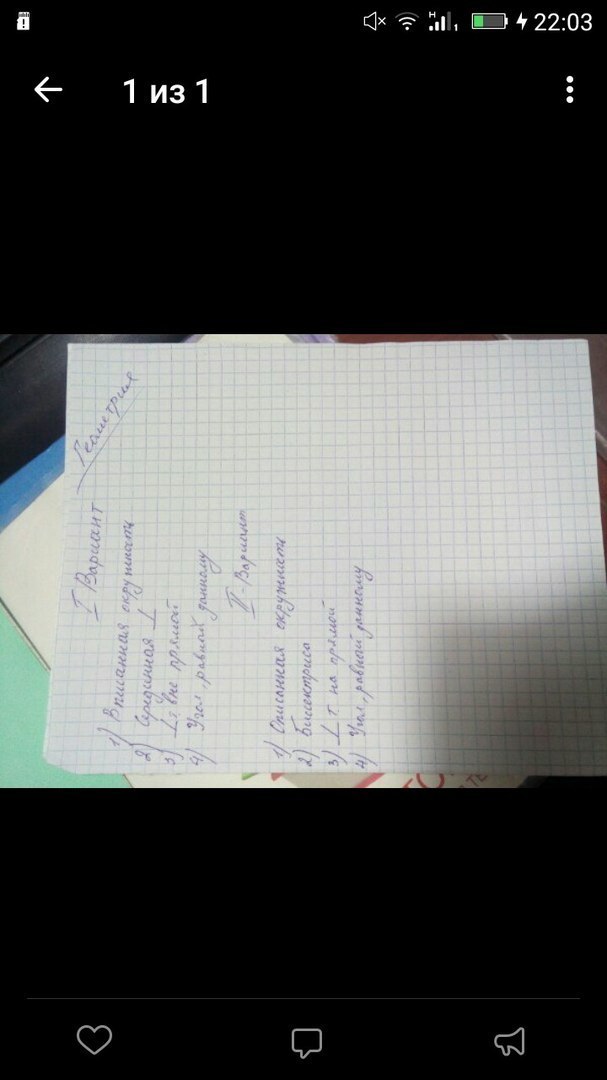 22:03
1 из 1
Геометрия
I Вариант
1) Вписанная окружность
2) Серединная ⊥
3) ⊥ т вне прямой
4) Угол, равный данному
II - Вариант
1) Описанная окружность
2) Биссектриса
3) ⊥ т на прямой
4) Угол, равный данному